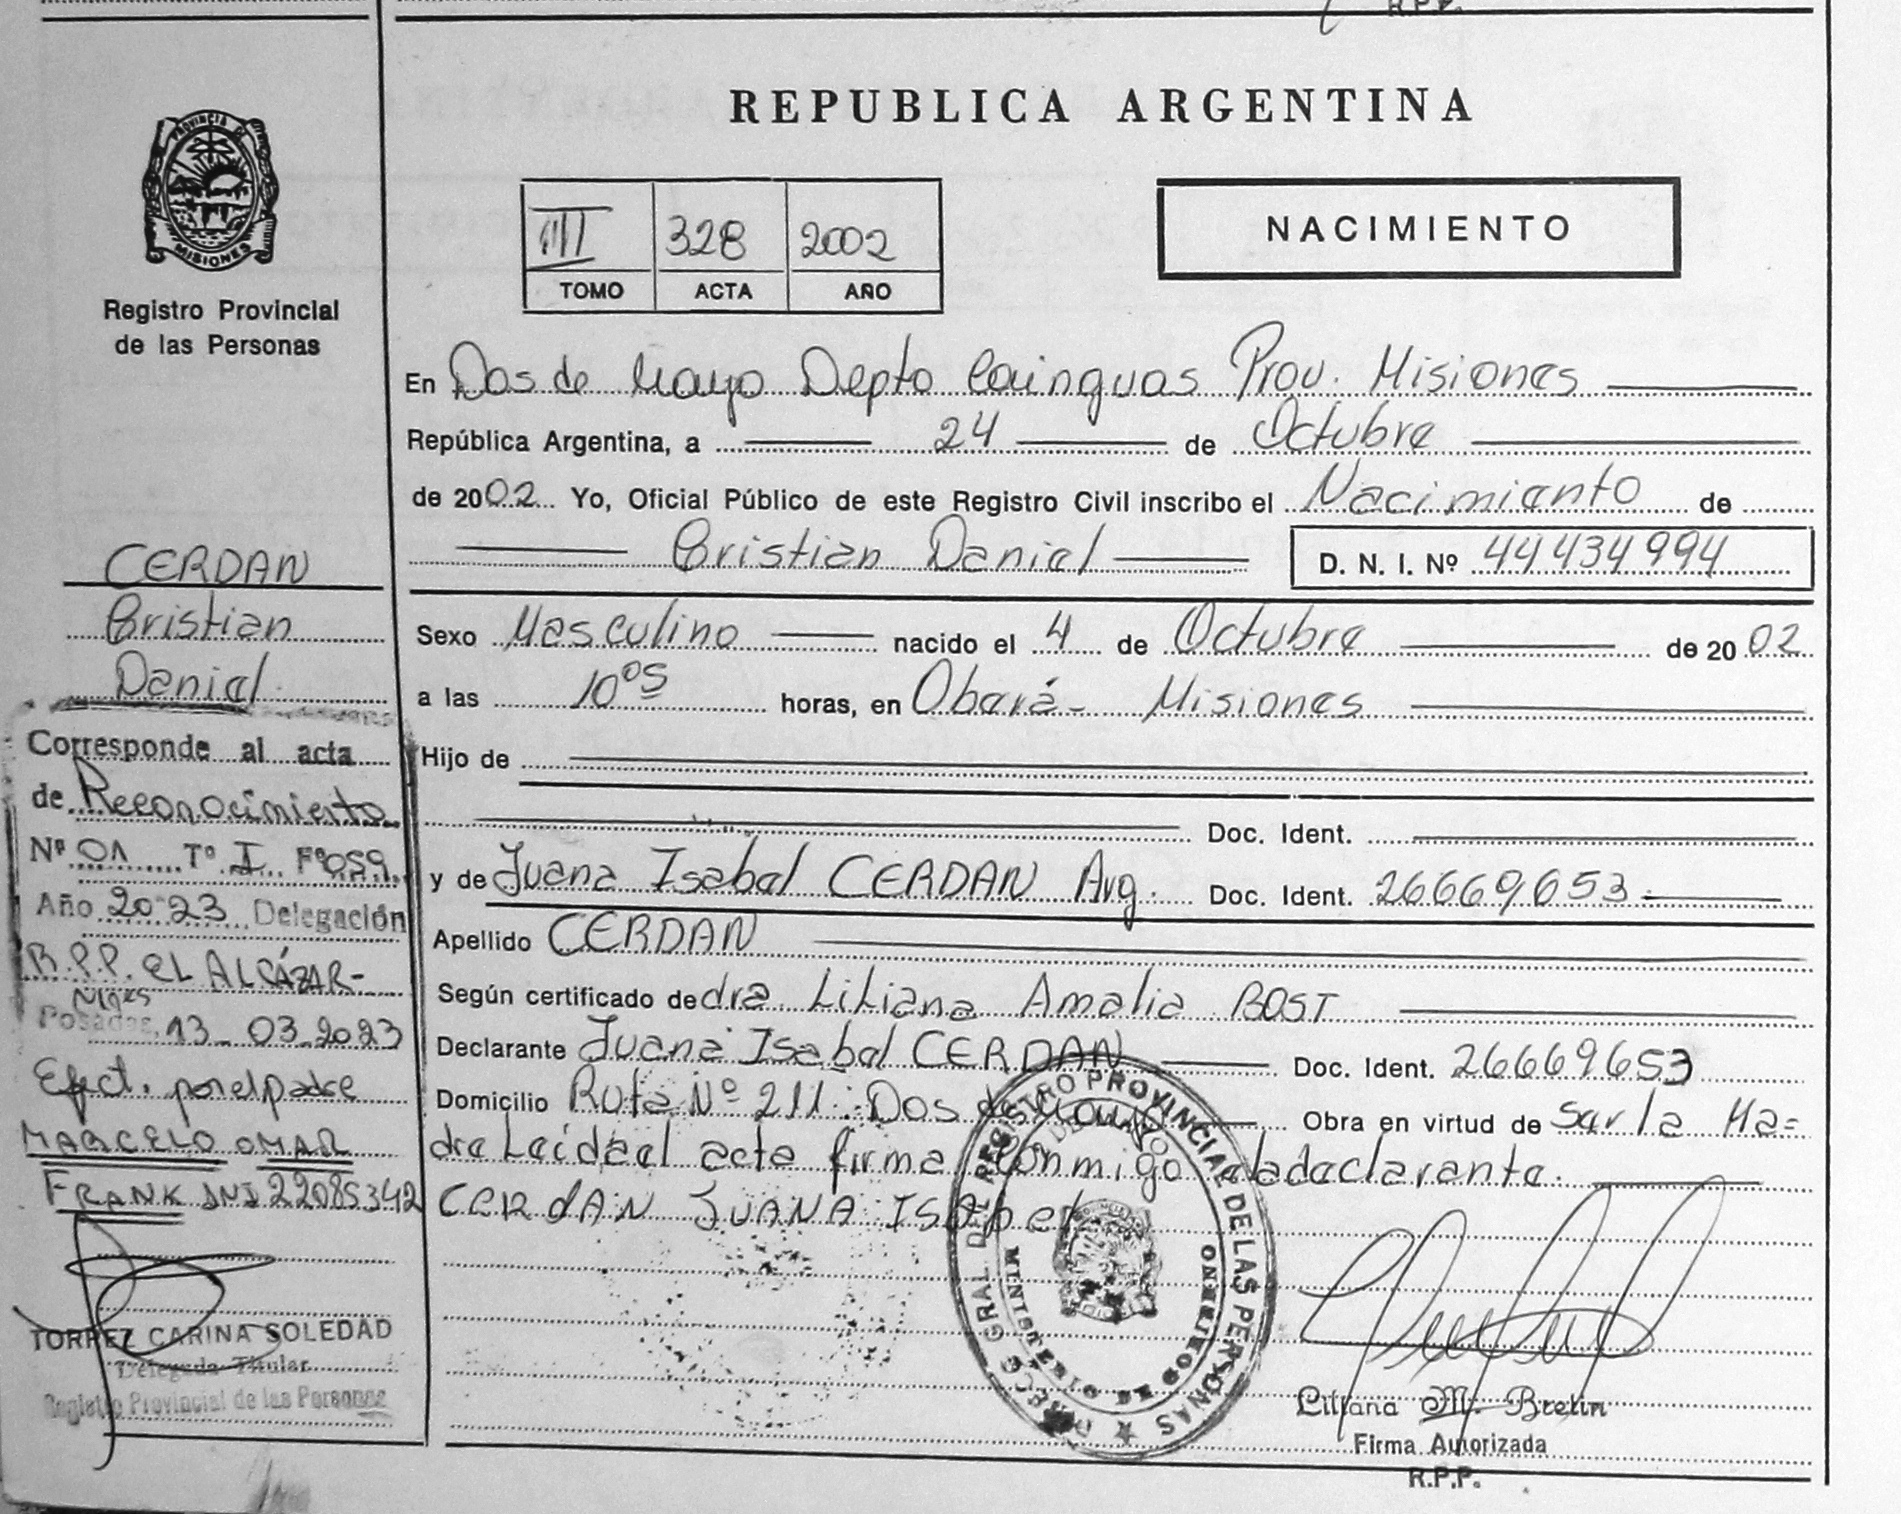 R.P.P.
REPUBLICA ARGENTINA
PROVINCIA DE
MISIONES
Registro Provincial
de las Personas
III 328 2002
TOMO ACTA AÑO
NACIMIENTO
En Dos de Mayo Depto Cainguas Prov. Misiones
República Argentina, a 24 de Octubre
de 2002 Yo, Oficial Público de este Registro Civil inscribo el Nacimiento de
Cristian Daniel D. N. I. Nº 44434994
Sexo Masculino nacido el 4 de Octubre de 2002
a las 10 05 horas, en Oberá - Misiones
Hijo de
Doc. Ident.
y de Juana Isabel CERDAN Arg. Doc. Ident. 26669653
Apellido CERDAN
Según certificado de dra. Liliana Amalia BOST
Declarante Juana Isabel CERDAN Doc. Ident. 26669653
Domicilio Ruta Nº 211 : Dos de Mayo Obra en virtud de Ser la Ma=
dre Leida el acta firma conmigo la declarante.
CERDAN JUANA ISABEL
CERDAN
Cristian
Daniel
Corresponde al acta
de Reconocimiento
Nº 01 Tº I Fº 059
Año 2023 Delegación
R.P.P. EL ALCÁZAR-
Mnes
Posadas, 13-03-2023
Efect. por el padre
MARCELO OMAR
FRANK DNI 22085342
TORREZ CARINA SOLEDAD
Delegada Titular
Registro Provincial de las Personas
DIRECC. GRAL. DEL REGISTRO PROVINCIAL DE LAS PERSONAS
MINISTERIO DE GOBIERNO
Liliana M. Brelin
Firma Autorizada
R.P.P.